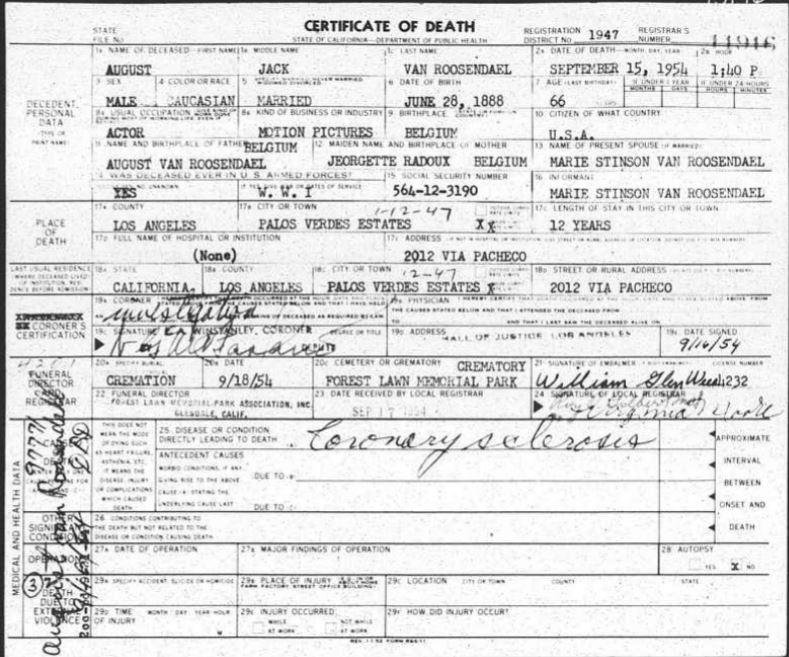 STATE FILE NO.
CERTIFICATE OF DEATH
STATE OF CALIFORNIA—DEPARTMENT OF PUBLIC HEALTH
REGISTRATION DISTRICT NO. 1947
REGISTRAR'S NUMBER 11916
DECEDENT PERSONAL DATA
(TYPE OR PRINT NAME)
1A NAME OF DECEASED—FIRST NAME 1B MIDDLE NAME 1C LAST NAME 2A DATE OF DEATH—MONTH, DAY, YEAR 2B HOUR
AUGUST JACK VAN ROOSENDAEL SEPTEMBER 15, 1954 1:40 P
3 SEX 4 COLOR OR RACE 5 6 DATE OF BIRTH 7 AGE (LAST BIRTHDAY) IF UNDER 1 YEAR IF UNDER 24 HOURS
MONTHS DAYS HOURS MINUTES
MALE CAUCASIAN MARRIED JUNE 28, 1888 66 YEARS
8A USUAL OCCUPATION 8B KIND OF BUSINESS OR INDUSTRY 9 BIRTHPLACE 10 CITIZEN OF WHAT COUNTRY
ACTOR MOTION PICTURES BELGIUM U.S.A.
11 NAME AND BIRTHPLACE OF FATHER 12 MAIDEN NAME AND BIRTHPLACE OF MOTHER 13 NAME OF PRESENT SPOUSE (IF MARRIED)
BELGIUM
AUGUST VAN ROOSENDAEL JEORGETTE RADOUX BELGIUM MARIE STINSON VAN ROOSENDAEL
14 WAS DECEASED EVER IN U. S. ARMED FORCES? 15 SOCIAL SECURITY NUMBER 16 INFORMANT
YES W. W. I 564-12-3190 MARIE STINSON VAN ROOSENDAEL
PLACE OF DEATH
17A COUNTY 17B CITY OR TOWN 1-12-47 17C LENGTH OF STAY IN THIS CITY OR TOWN
LOS ANGELES PALOS VERDES ESTATES XX 12 YEARS
17D FULL NAME OF HOSPITAL OR INSTITUTION 17E ADDRESS
(None) 2012 VIA PACHECO
LAST USUAL RESIDENCE
18A STATE 18B COUNTY 18C CITY OR TOWN 12-47 18D STREET OR RURAL ADDRESS
CALIFORNIA. LOS ANGELES PALOS VERDES ESTATES X 2012 VIA PACHECO
CORONER'S CERTIFICATION
19A CORONER 19B PHYSICIAN
investigation
19C SIGNATURE E.A. WINSTANLEY, CORONER DEGREE OR TITLE 19D ADDRESS HALL OF JUSTICE LOS ANGELES 19E DATE SIGNED
DEPUTY 9/16/54
FUNERAL DIRECTOR AND REGISTRAR
20A SPECIFY BURIAL 20B DATE 20C CEMETERY OR CREMATORY CREMATORY 21 SIGNATURE OF EMBALMER LICENSE NUMBER
CREMATION 9/18/54 FOREST LAWN MEMORIAL PARK William Glen Weed 4232
22 FUNERAL DIRECTOR 23 DATE RECEIVED BY LOCAL REGISTRAR 24 SIGNATURE OF LOCAL REGISTRAR
FOREST LAWN MEMORIAL-PARK ASSOCIATION, INC.
GLENDALE, CALIF. SEP 17 1954
MEDICAL AND HEALTH DATA
THIS DOES NOT MEAN THE MODE OF DYING SUCH AS HEART FAILURE, ASTHENIA, ETC. IT MEANS THE DISEASE, INJURY OR COMPLICATIONS WHICH CAUSED DEATH
25. DISEASE OR CONDITION DIRECTLY LEADING TO DEATH Coronary sclerosis
ANTECEDENT CAUSES
MORBID CONDITIONS, IF ANY, GIVING RISE TO THE ABOVE CAUSE (A) STATING THE UNDERLYING CAUSE LAST
DUE TO
DUE TO
APPROXIMATE INTERVAL BETWEEN ONSET AND DEATH
OTHER SIGNIFICANT CONDITIONS
26 CONDITIONS CONTRIBUTING TO THE DEATH BUT NOT RELATED TO THE DISEASE OR CONDITION CAUSING DEATH
27A DATE OF OPERATION 27B MAJOR FINDINGS OF OPERATION 28 AUTOPSY
YES X NO
DEATH DUE TO EXTERNAL VIOLENCE
29A SPECIFY ACCIDENT, SUICIDE OR HOMICIDE 29B PLACE OF INJURY 29C LOCATION CITY OR TOWN COUNTY STATE
29D TIME OF INJURY MONTH DAY YEAR HOUR 29E INJURY OCCURRED 29F HOW DID INJURY OCCUR?
WHILE AT WORK NOT WHILE AT WORK